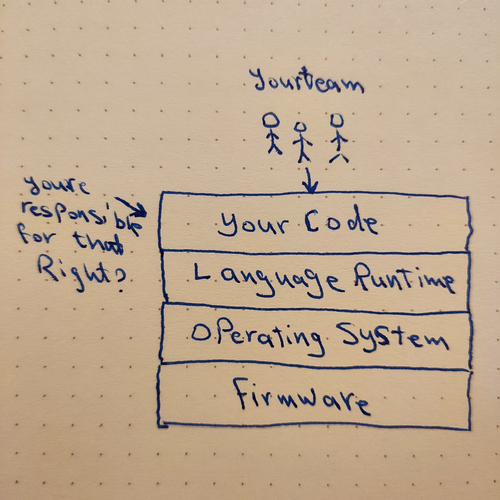 yourteam
youre
responsible
for that
Right?
your Code
Language Runtime
Operating System
firmware